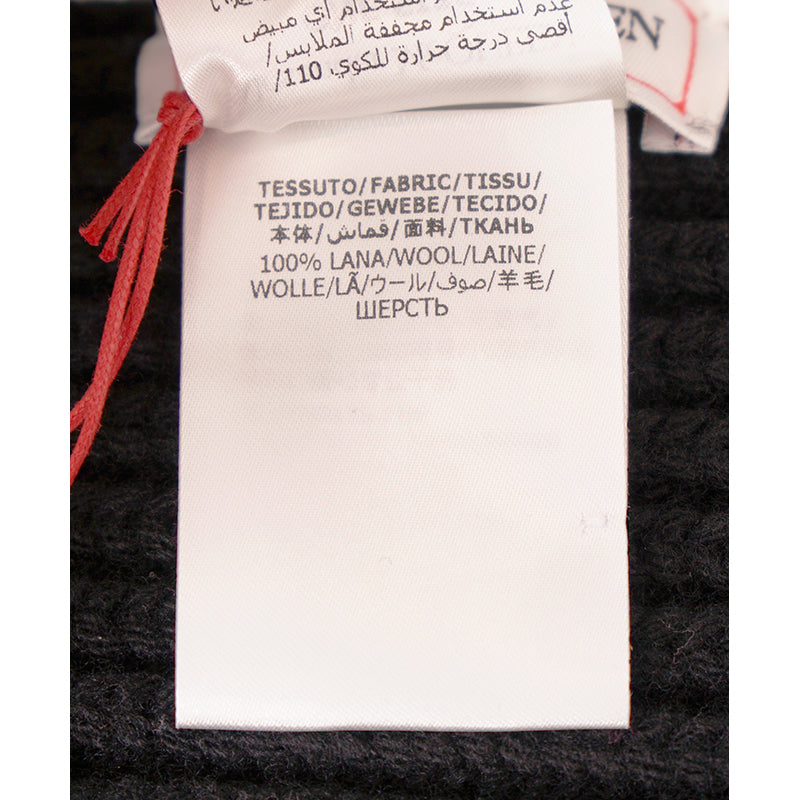 عدم استخدام أي مبيض
عدم استخدام مجففة الملابس/
أقصى درجة حرارة للكوي 110/
EN
TESSUTO/FABRIC/TISSU/
TEJIDO/GEWEBE/TECIDO/
本体/قماش/面料/ТКАНЬ
100% LANA/WOOL/LAINE/
WOLLE/LÃ/ウール/صوف/羊毛/
ШЕРСТЬ